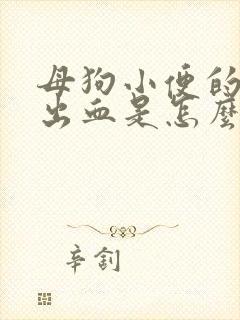 母狗小便的
出血是怎麼
辛劄